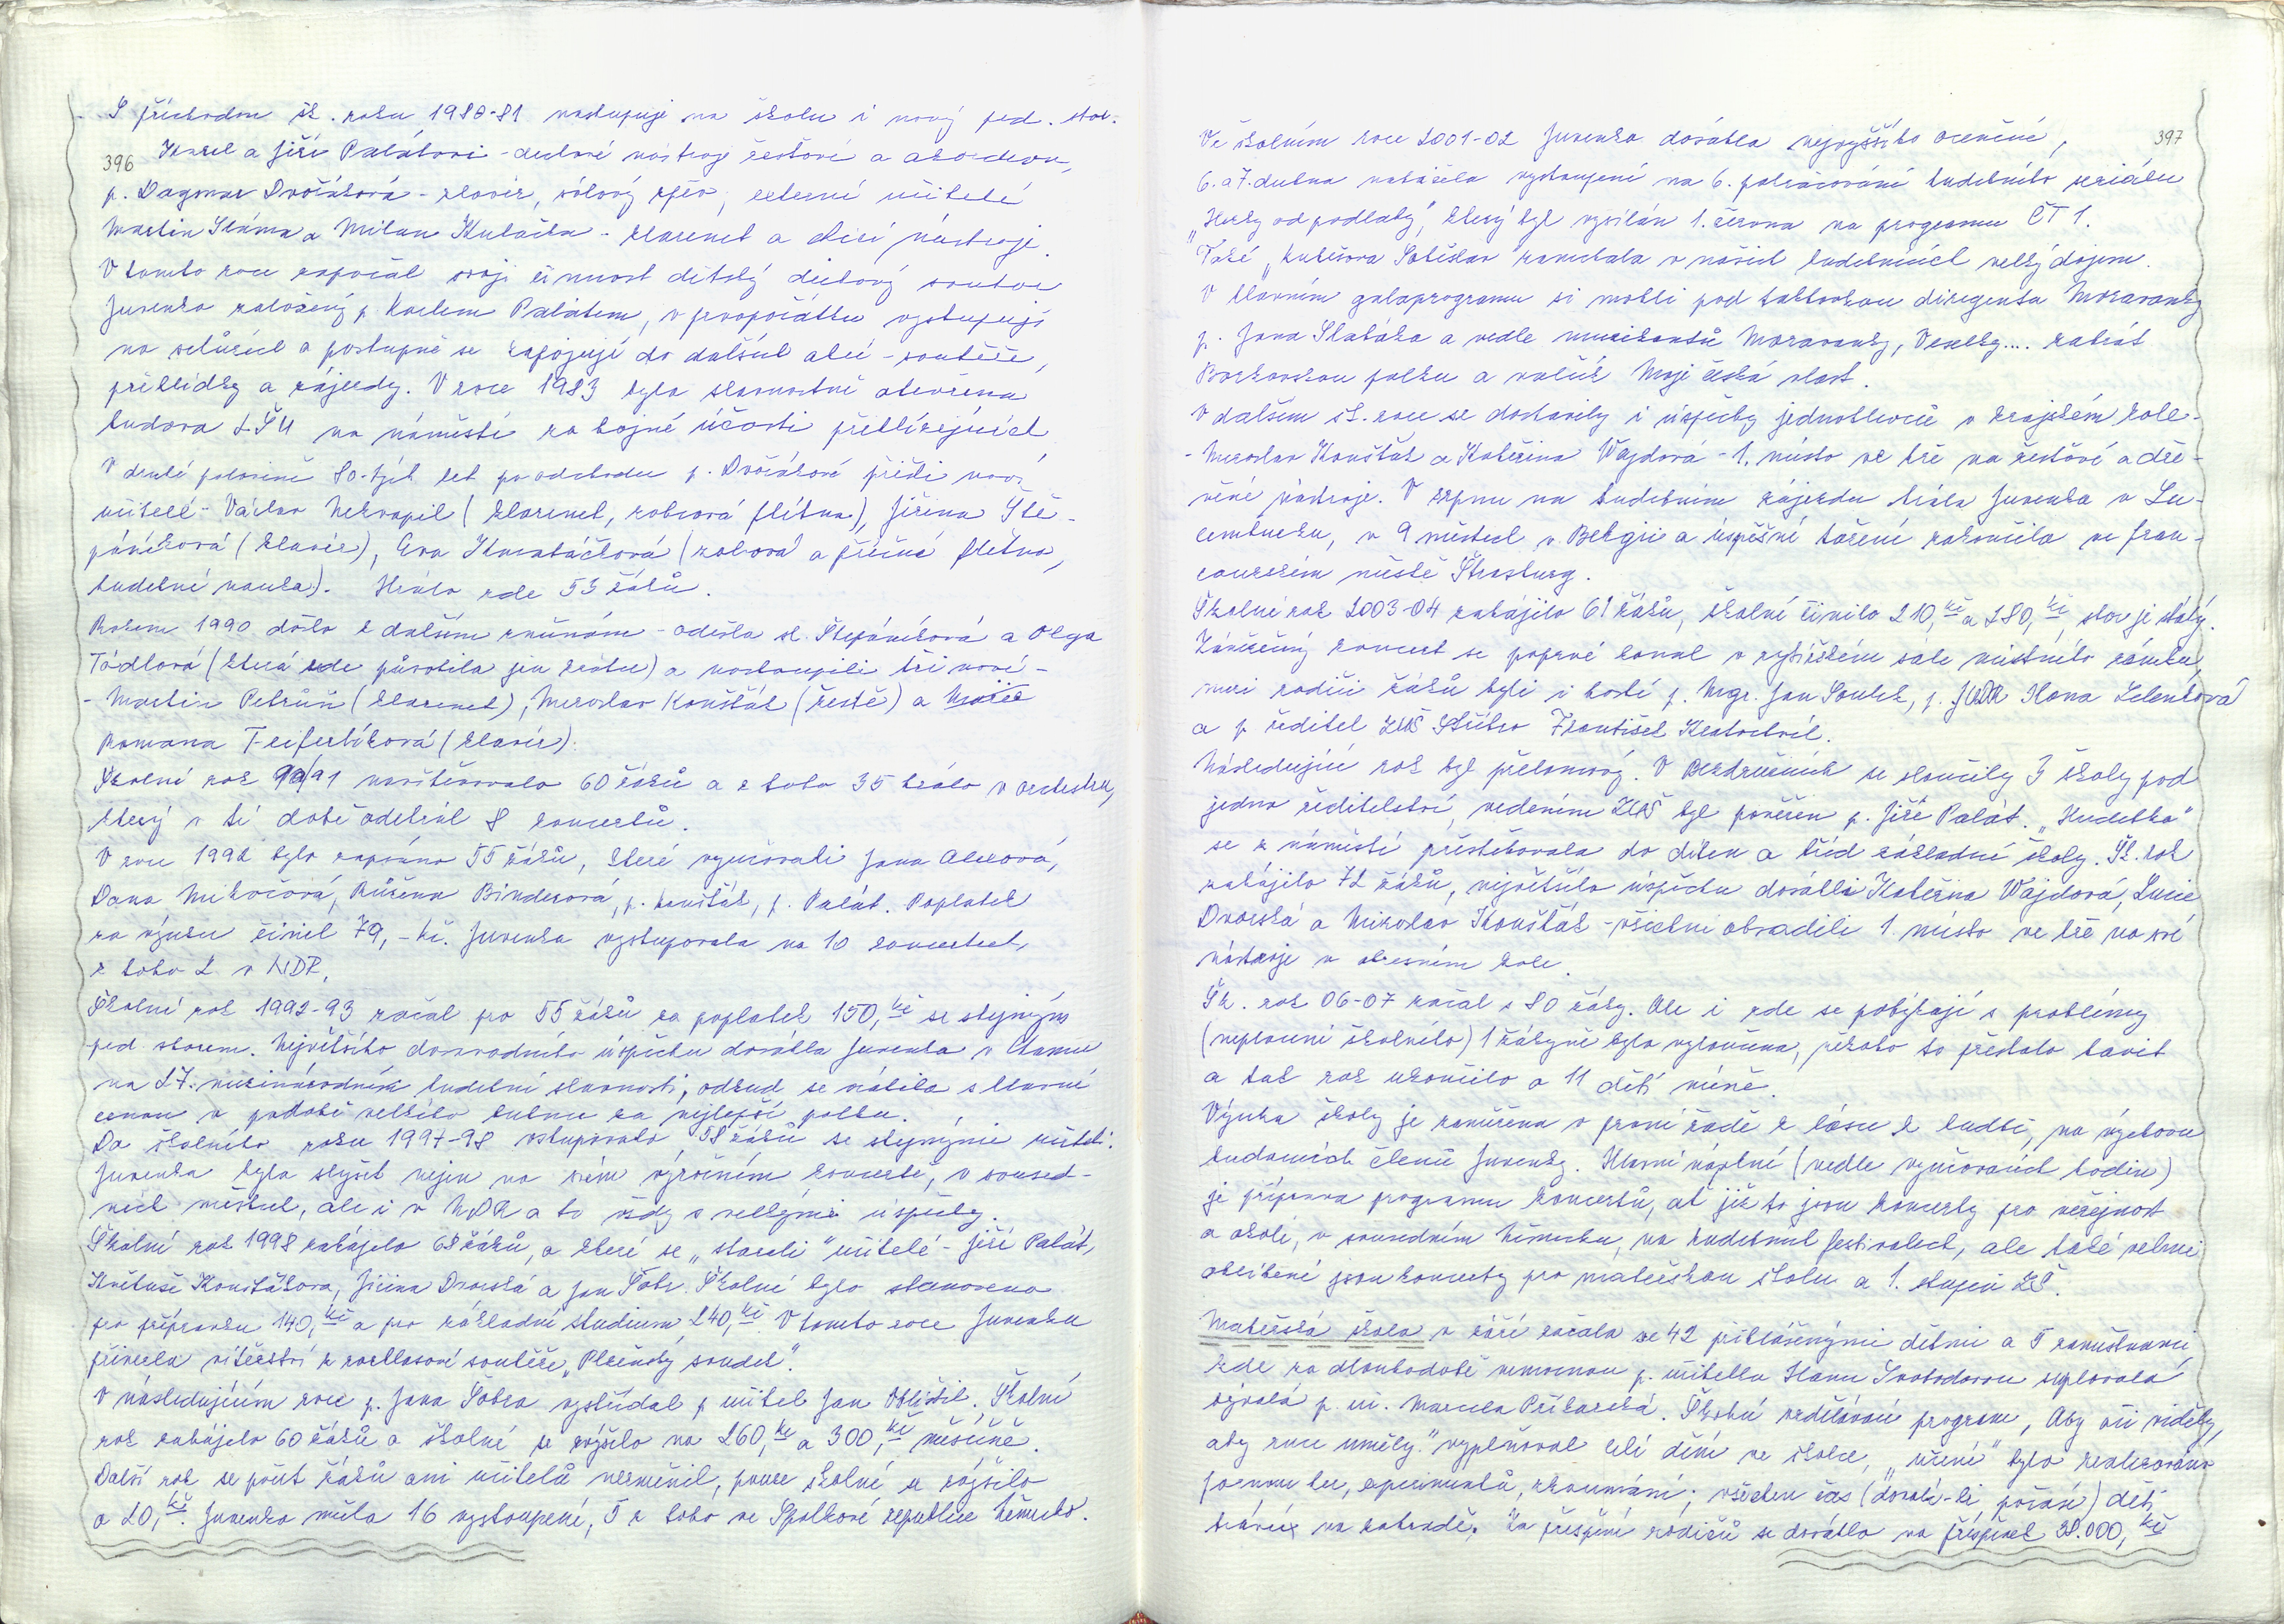 S příchodem šk. roku 1980-81 nastupuje na školu i nový ped. sbor.
396
Karel a Jiří Palátovi - dechové nástroje žesťové a akordeon,
p. Dagmar Dvořáková - klavír, sólový zpěv, externí učitelé
Martin Sláma a Milan Kubička - klarinet a bicí nástroje.
V tomto roce započal svoji činnost dětský dechový soubor
Juvenka založený p. Karlem Palátem, v prvopočátku vystupují
na schůzích a postupně se zapojují do dalších akcí - soutěže,
přehlídky a zájezdy. V roce 1983 byla slavnostně otevřena
budova LŠU na náměstí za hojné účasti přihlížejících.
V druhé polovině 80-tých let po odchodu p. Dvořákové přišli noví
učitelé - Václav Nekvapil (klarinet, zobcová flétna), Jiřina Ště-
pánková (klavír), Eva Kurabáčková (zobcová a příčná flétna,
hudební nauka). Hrálo zde 53 žáků.
Rokem 1990 došlo k dalším změnám - odešla sl. Štěpánková a Olga
Tádlová (která zde působila jen krátce) a nastoupili tři noví -
- Martin Petrůň (klarinet), Miroslav Konšťák (žestě) a
Romana Feiferlíková (klavír).
Školní rok 90/91 navštěvovalo 60 žáků a z toho 35 hrálo v orchestru,
který v té době odehrál 8 koncertů.
V roce 1992 bylo zapsáno 55 žáků, které vyučovali Jana Alexová,
Dana Mikočová, Růžena Binderová, p. Konšťák, p. Palát. Poplatek
za výuku činil 79,- Kč. Juvenka vystupovala na 10 koncertech,
z toho 2 v NDR.
Školní rok 1992-93 začal pro 55 žáků za poplatek 150,- Kč se stejným
ped. sborem. Největšího dosavadního úspěchu dosáhla Juvenka v Chamu
na 27. mezinárodní hudební slavnosti, odkud se vrátila s hlavní
cenou v podobě velkého bubnu za nejlepší polku.
Do školního roku 1997-98 vstupovalo 58 žáků se stejnými učiteli.
Juvenka byla slyšet nejen na svém výročním koncertě, v soused-
ních městech, ale i v NDR a to vždy s velkými úspěchy.
Školní rok 1998 zahájilo 68 žáků, o které se „starali" učitelé - Jiří Palát,
Květuše Konšťáková, Jiřina Dvorská a Jan Šobr. Školné bylo stanoveno
pro přípravku 140,- Kč a pro základní studium 240,- Kč. V tomto roce Juvenka
přivezla vítězství z rozhlasové soutěže „Plzeňský soudek".
V následujícím roce p. Jana Šobra vystřídal p. učitel Jan Obližil. Školní
rok zahájilo 60 žáků a školné se zvýšilo na 260,- Kč a 300,- Kč měsíčně.
Další rok se počet žáků ani učitelů nezměnil, pouze školné se zvýšilo
o 20,- Kč. Juvenka měla 16 vystoupení, 5 z toho ve Spolkové republice Německo.
397
Ve školním roce 2001-02 Juvenka dosáhla nejvyššího ocenění,
6. a 7. dubna natáčela vystoupení na 6. pokračování hudebního seriálu
„Hezky od podlahy", který byl vysílán 1. června na programu ČT 1.
Také „Kubešova Soběslav" zanechala v našich hudebnících velký dojem.
V hlavním galaprogramu si mohli pod taktovkou dirigenta Moravanky
p. Jana Slabáka a vedle muzikantů Moravanky, Veselky.... zahrát
Borkovskou polku a valčík Moje česká vlast.
V dalším šk. roce se dostavily i úspěchy jednotlivců v krajském kole -
- Miroslav Konšťák a Kateřina Wajdová - 1. místo ve hře na žesťové a dře-
věné nástroje. V srpnu na hudebním zájezdu hrála Juvenka v Lu-
cembursku, v 9 městech v Belgii a úspěšné tažení zakončila ve fran-
couzském městě Štrasburg.
Školní rok 2003-04 zahájilo 61 žáků, školné činilo 210,- Kč a 280,- Kč, sbor je stálý.
Závěrečný koncert se poprvé konal v rytířském sále místního zámku,
mezi rodiči žáků byli i hosté p. Mgr. Jan Soulek, p. JUDr. Ilona Zelenková
a p. ředitel ZUŠ Stříbro František Kratochvíl.
Následující rok byl přelomový. V Bezdružicích se sloučily 3 školy pod
jedno ředitelství, vedením ZUŠ byl pověřen p. Jiří Palát. „Hudebka"
se z náměstí přestěhovala do dílen a tříd základní školy. Šk. rok
zahájilo 72 žáků, největšího úspěchu dosáhli Kateřina Wajdová, Lucie
Dvorská a Miroslav Konšťák - všichni obsadili 1. místo ve hře na své
nástroje v okresním kole.
Šk. rok 06-07 začal s 80 žáky. Ale i zde se potýkají s problémy
(neplacení školného) 1 žákyně byla vyloučena, někoho to přestalo bavit
a tak rok ukončilo o 11 dětí méně.
Výuka školy je zaměřena v první řadě k lásce k hudbě, na výchovu
budoucích členů Juvenky. Hlavní náplní (vedle vyučovacích hodin)
je příprava programu koncertů, ať již to jsou koncerty pro veřejnost
a okolí, v sousedním Německu, na hudebních festivalech, ale také velmi
oblíbené jsou koncerty pro mateřskou školu a 1. stupeň ZŠ.
Mateřská škola v září začala se 42 přihlášenými dětmi a 5 zaměstnanci,
kde za dlouhodobě nemocnou p. učitelku Hanu Svobodovou suplovala
bývalá p. uč. Marcela Příkaská. Školní vzdělávací program „Aby oči viděly,
aby ruce uměly." vyplňoval celé dění ve školce, „učení" bylo realizováno
formou her, experimentů, zkoumání; všechen čas (dovolí-li počasí) děti
tráví na zahradě. Za přispění rodičů se dosáhlo na příspěvek 38.000,- Kč